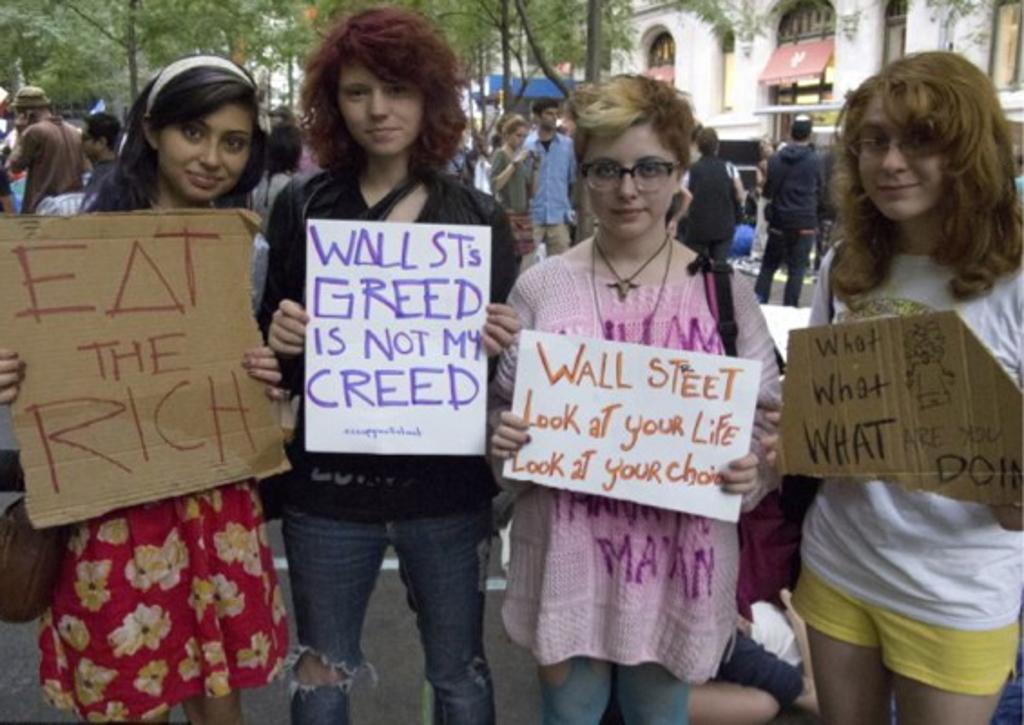 EAT
THE
RICH
WALL ST's
GREED
IS NOT MY
CREED
WALL STREET
Look at your LIFE
Look at your choi
What
What
WHAT ARE YOU
DOIN